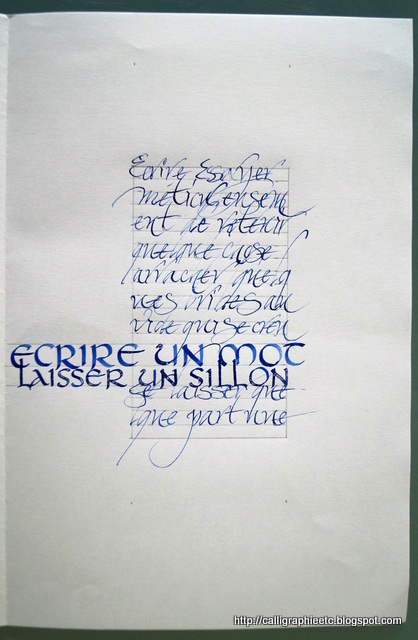 Ecrire, Essayer
méticuleusem
ent de retenir
quelque chose
arracher quelq
ues au
vide qui se creu
ECRIRE UN MOT
LAISSER UN SILLON
se laisser que
lque part une
http://calligraphieetc.blogspot.com